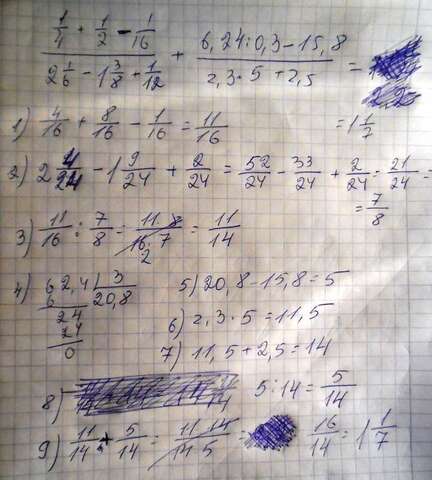 1/4 + 1/2 - 1/16 / 2 1/6 - 1 3/8 + 1/12 + 6,24:0,3-15,8 / 2,3·5+2,5 =
= 1 1/7
1) 4/16 + 8/16 - 1/16 = 11/16
2) 2 4/24 - 1 9/24 + 2/24 = 52/24 - 33/24 + 2/24 = 21/24 =
= 7/8
3) 11/16 : 7/8 = 11·8/16·7 = 11/14
2
4) 62,4 | 3
6 20,8
24
24
0
5) 20,8-15,8=5
6) 2,3·5=11,5
7) 11,5+2,5=14
8) 5:14= 5/14
9) 11/14 + 5/14 = 11·14/14·5 = 16/14 = 1 1/7